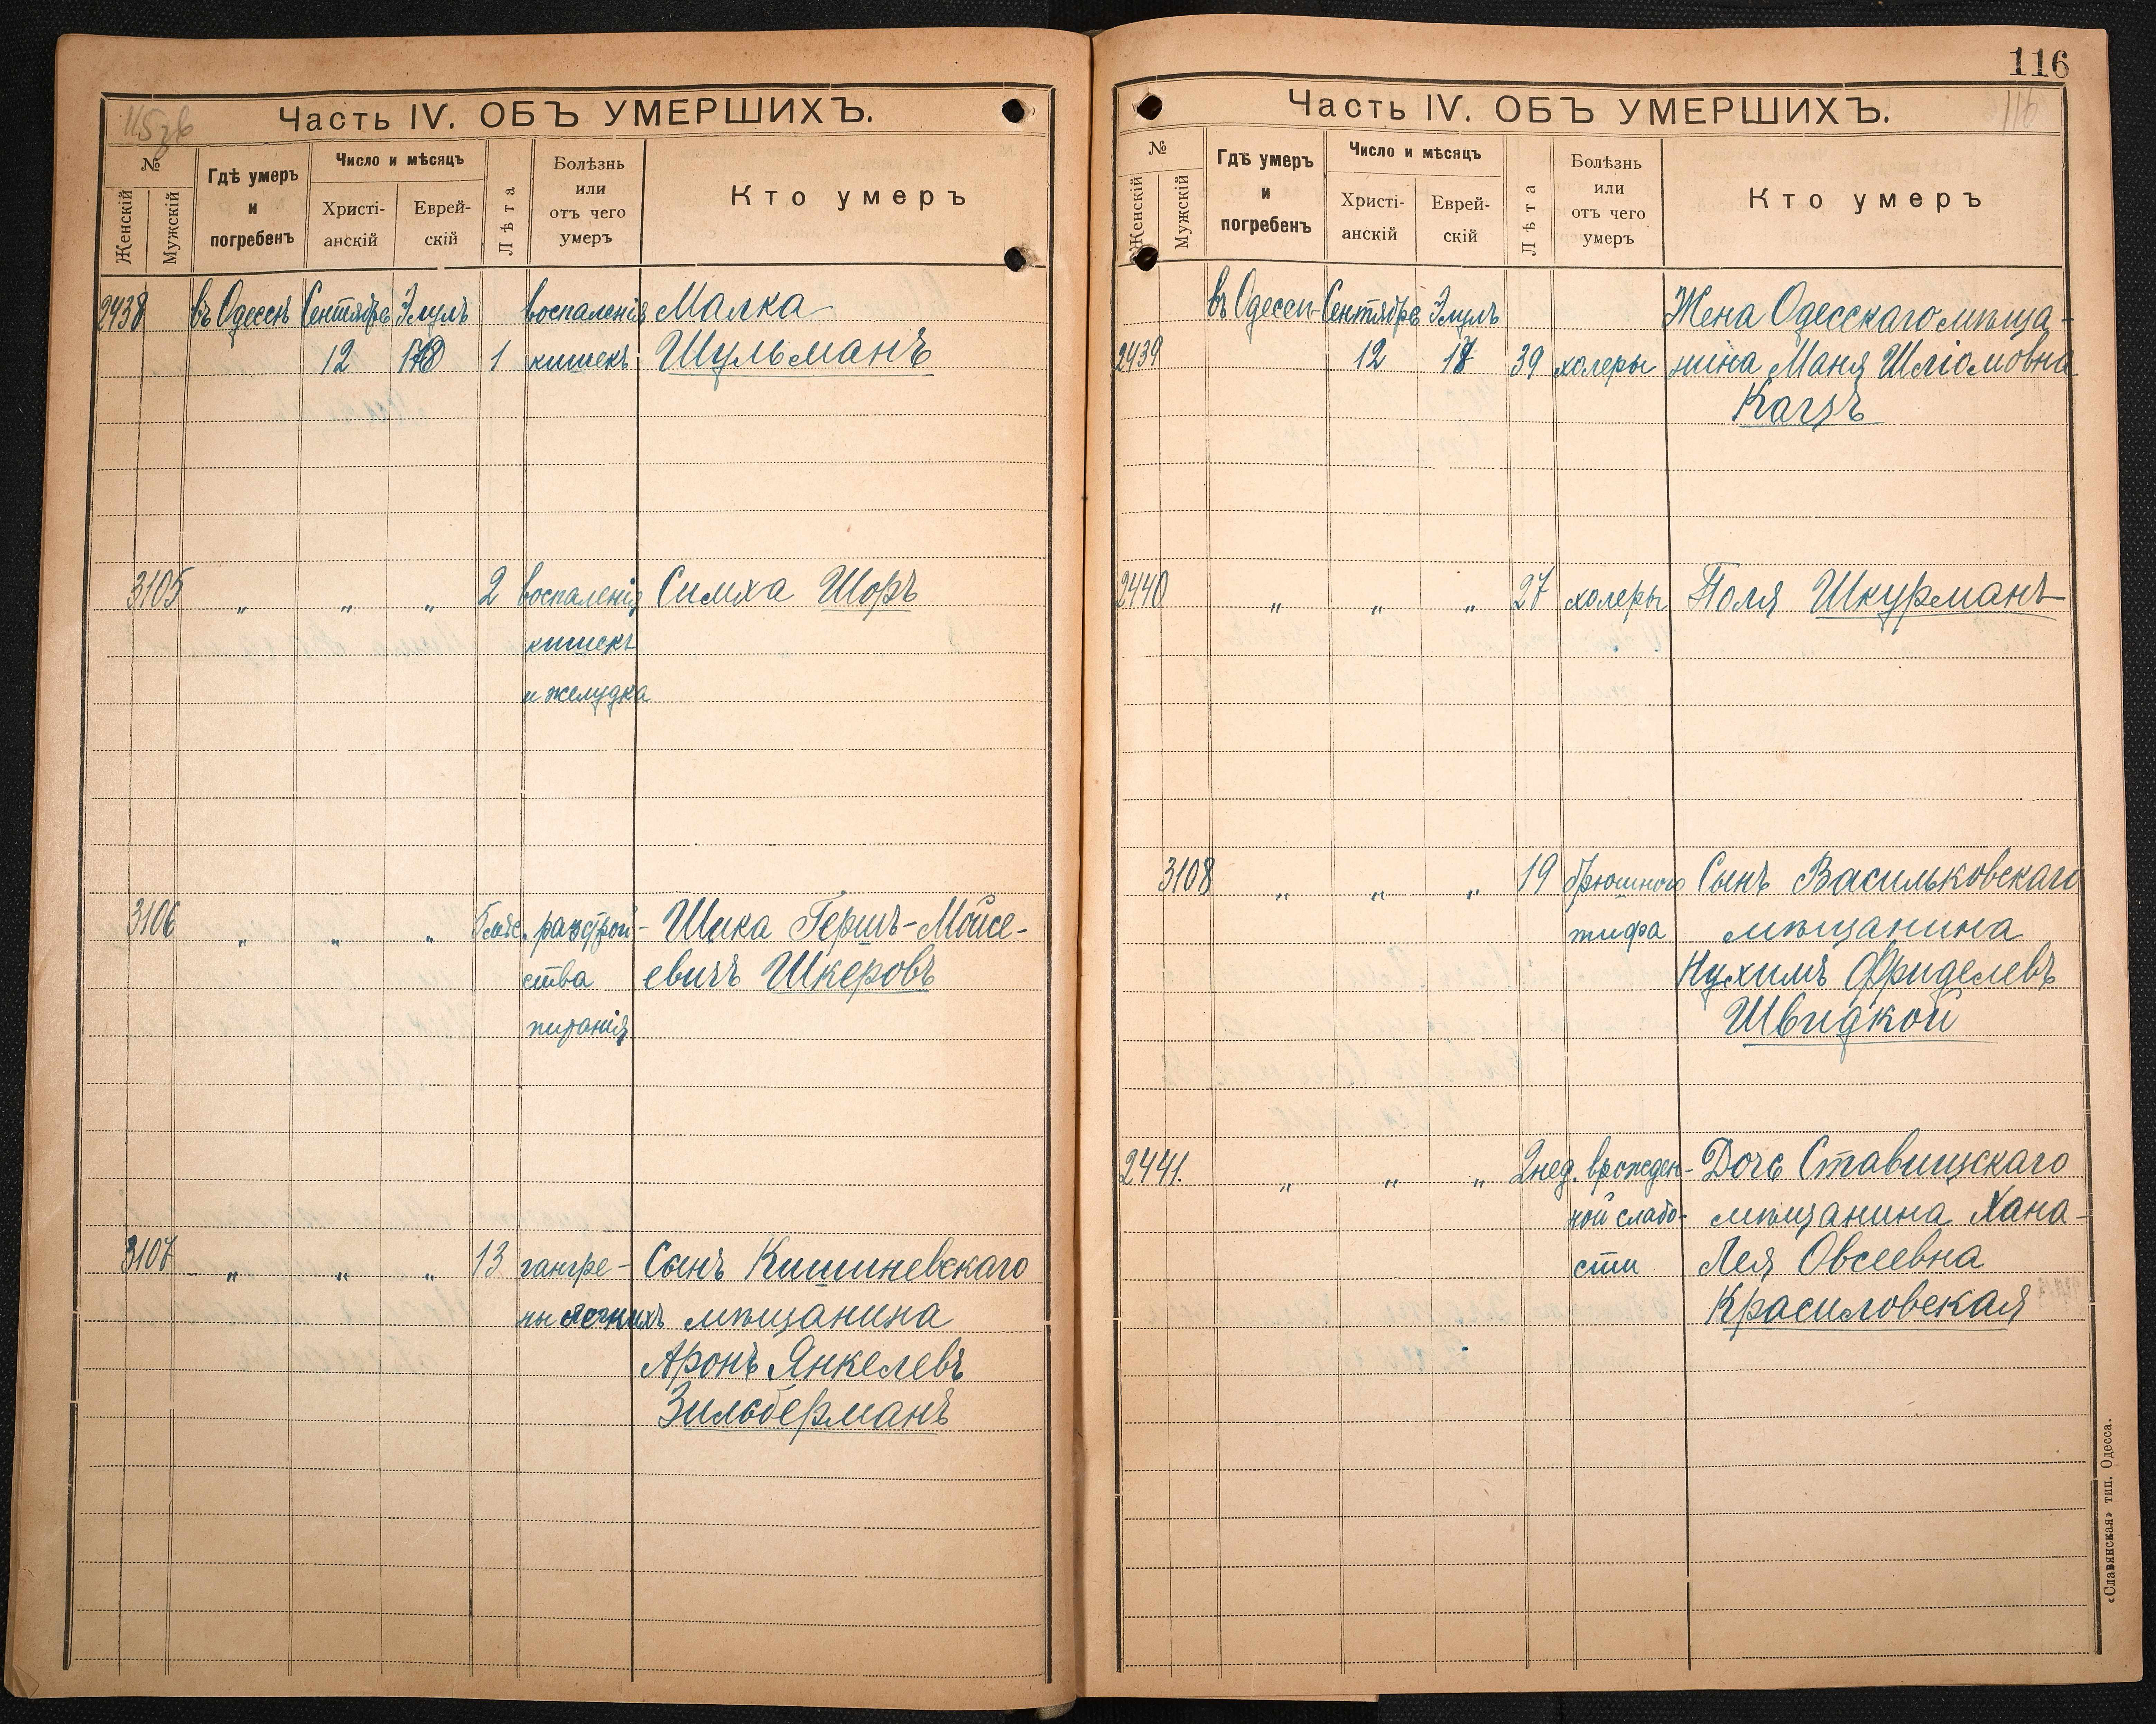 115 зв
Часть IV. ОБЪ УМЕРШИХЪ.
№
Женскій
Мужскій
Гдѣ умеръ
и
погребенъ
Число и мѣсяцъ
Христі-
анскій
Еврей-
скій
Лѣта
Болѣзнь
или
отъ чего
умеръ
Кто умеръ
2438 въ Одессѣ Сентябрь Элулъ воспаленія Малка
12 1 кишекъ Шульманъ
3105 „ „ „ 2 воспаленія Симха Шоръ
кишекъ
и желудка
3106 „ „ „ разстрой- Шика Гершъ-Мойсе-
ства евичъ Шкеровъ
питанія
3107 „ „ „ 13 гангре- Сынъ Кишиневскаго
ны легкихъ мѣщанина
Аронъ Янкелевъ
Зильберманъ
116
116
Часть IV. ОБЪ УМЕРШИХЪ.
№
Женскій
Мужскій
Гдѣ умеръ
и
погребенъ
Число и мѣсяцъ
Христі-
анскій
Еврей-
скій
Лѣта
Болѣзнь
или
отъ чего
умеръ
Кто умеръ
въ Одессѣ Сентябрь Элулъ Жена Одесскаго мѣща-
2439 12 39 холеры нина Маня Шліомовна
Кацъ
2440 „ „ „ 27 холеры Поля Шкурманъ
3108 „ „ „ 19 брюшного Сынъ Васильковскаго
тифа мѣщанина
Нухимъ Фриделевъ
Швидкой
2441. „ „ „ 2 нед. врожден- Дочь Ставищскаго
ной слабо- мѣщанина Хана-
сти Лея Овсеевна
Красиловская
«Славянская» тип. Одесса.